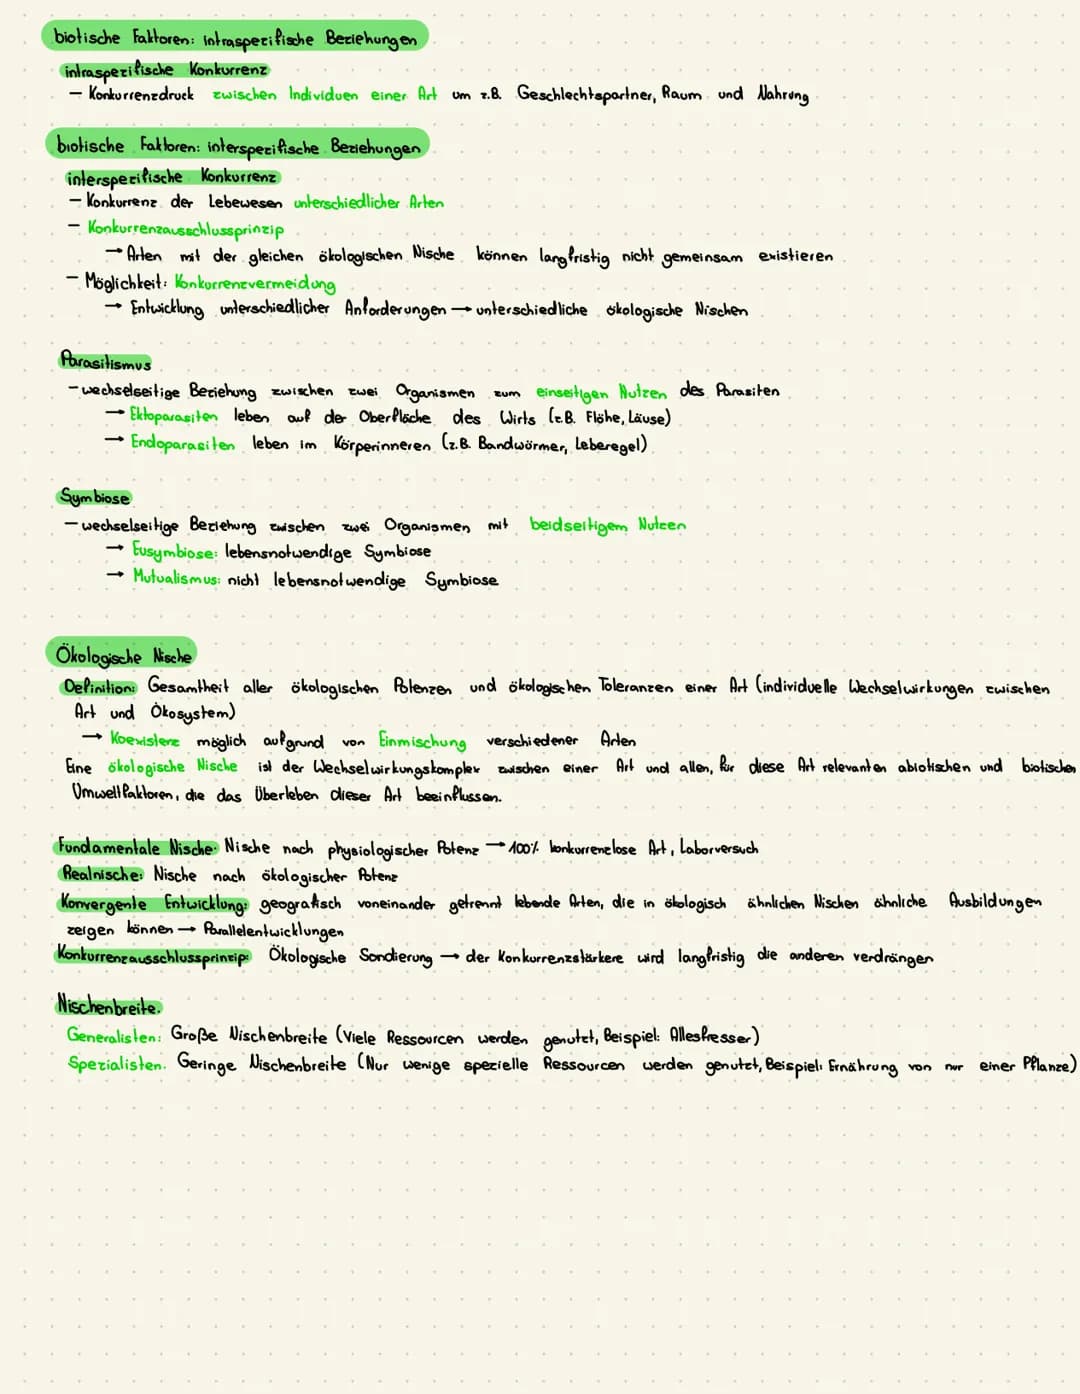 biotische Faktoren: intraspezifische Beziehungen
intraspezifische Konkurrenz
- Konkurrenzdruck zwischen Individuen einer Art um z.B. Geschlechtspartner, Raum und Nahrung
biotische Faktoren: interspezifische Beziehungen
interspezifische Konkurrenz
- Konkurrenz der Lebewesen unterschiedlicher Arten
- Konkurrenzausschlussprinzip
→ Arten mit der gleichen ökologischen Nische können langfristig nicht gemeinsam existieren
- Möglichkeit: Konkurrenzvermeidung
→ Entwicklung unterschiedlicher Anforderungen → unterschiedliche ökologische Nischen
Parasitismus
- wechselseitige Beziehung zwischen zwei Organismen zum einseitigen Nutzen des Parasiten
→ Ektoparasiten leben auf der Oberfläche des Wirts (z.B. Flöhe, Läuse)
→ Endoparasiten leben im Körperinneren (z.B. Bandwürmer, Leberegel)
Symbiose
- wechselseitige Beziehung zwischen zwei Organismen mit beidseitigem Nutzen
→ Eusymbiose: lebensnotwendige Symbiose
→ Mutualismus: nicht lebensnotwendige Symbiose
Ökologische Nische
Definition: Gesamtheit aller ökologischen Potenzen und ökologischen Toleranzen einer Art (individuelle Wechselwirkungen zwischen
Art und Ökosystem)
→ Koexistenz möglich aufgrund von Einmischung verschiedener Arten
Eine ökologische Nische ist der Wechselwirkungskomplex zwischen einer Art und allen, für diese Art relevanten abiotischen und biotischen
Umweltfaktoren, die das Überleben dieser Art beeinflussen.
Fundamentale Nische: Nische nach physiologischer Potenz → 100% konkurrenzlose Art, Laborversuch
Realnische: Nische nach ökologischer Potenz
Konvergente Entwicklung: geografisch voneinander getrennt lebende Arten, die in ökologisch ähnlichen Nischen ähnliche Ausbildungen
zeigen können → Parallelentwicklungen
Konkurrenzausschlussprinzip: Ökologische Sondierung → der Konkurrenzstärkere wird langfristig die anderen verdrängen
Nischenbreite:
Generalisten: Große Nischenbreite (Viele Ressourcen werden genutzt, Beispiel: Allesfresser)
Spezialisten: Geringe Nischenbreite (Nur wenige spezielle Ressourcen werden genutzt, Beispiel: Ernährung von nur einer Pflanze)